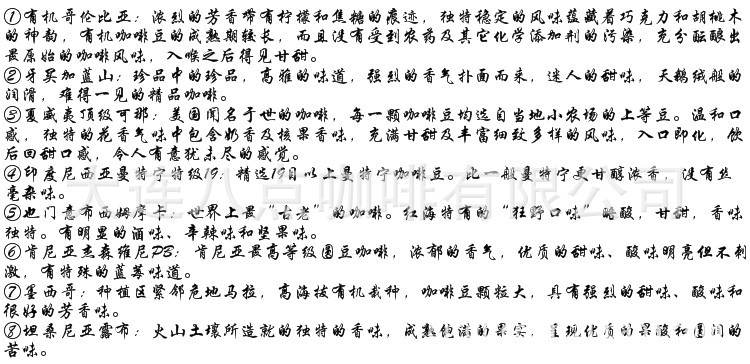 ①有机哥伦比亚：浓烈的芳香带有柠檬和焦糖的痕迹，独特稳定的风味蕴藏着巧克力和胡桃木
的神韵，有机咖啡豆的成熟期较长，而且没有受到农药及其它化学添加剂的污染，充分酝酿出
最原始的咖啡风味，入喉之后得见甘甜。
②牙买加蓝山：珍品中的珍品，高雅的味道，强烈的香气扑面而来，迷人的甜味，天鹅绒般的
润滑，难得一见的精品咖啡。
③夏威夷顶级可那：美国闻名于世的咖啡，每一颗咖啡豆均选自当地小农场的上等豆。温和口
感，独特的花香气味中包含奶香及核果香味，充满甘甜及丰富细致多样的风味，入口即化，饮
后回甜口感，令人有意犹未尽的感觉。
④印度尼西亚曼特宁特级19：精选19目以上曼特宁咖啡豆。比一般曼特宁更甘醇浓香，没有丝
毫杂味。
⑤也门意布西姆摩卡：世界上最“古老”的咖啡。红海特有的“狂野口味”略酸，甘甜，香味
独特。有明显的酒味、辛辣味和坚果味。
⑥肯尼亚杰森维尼PB：肯尼亚最高等级圆豆咖啡，浓郁的香气，优质的甜味、酸味明亮但不刺
激，有特殊的蓝莓味道。
⑦墨西哥：种植区紧邻危地马拉，高海拔有机栽种，咖啡豆颗粒大，具有强烈的甜味、酸味和
很好的芳香味。
⑧坦桑尼亚露布：火山土壤所造就的独特的香味，成熟饱满的果实，呈现优质的果酸和圆润的
苦味。
大连八京咖啡有限公司